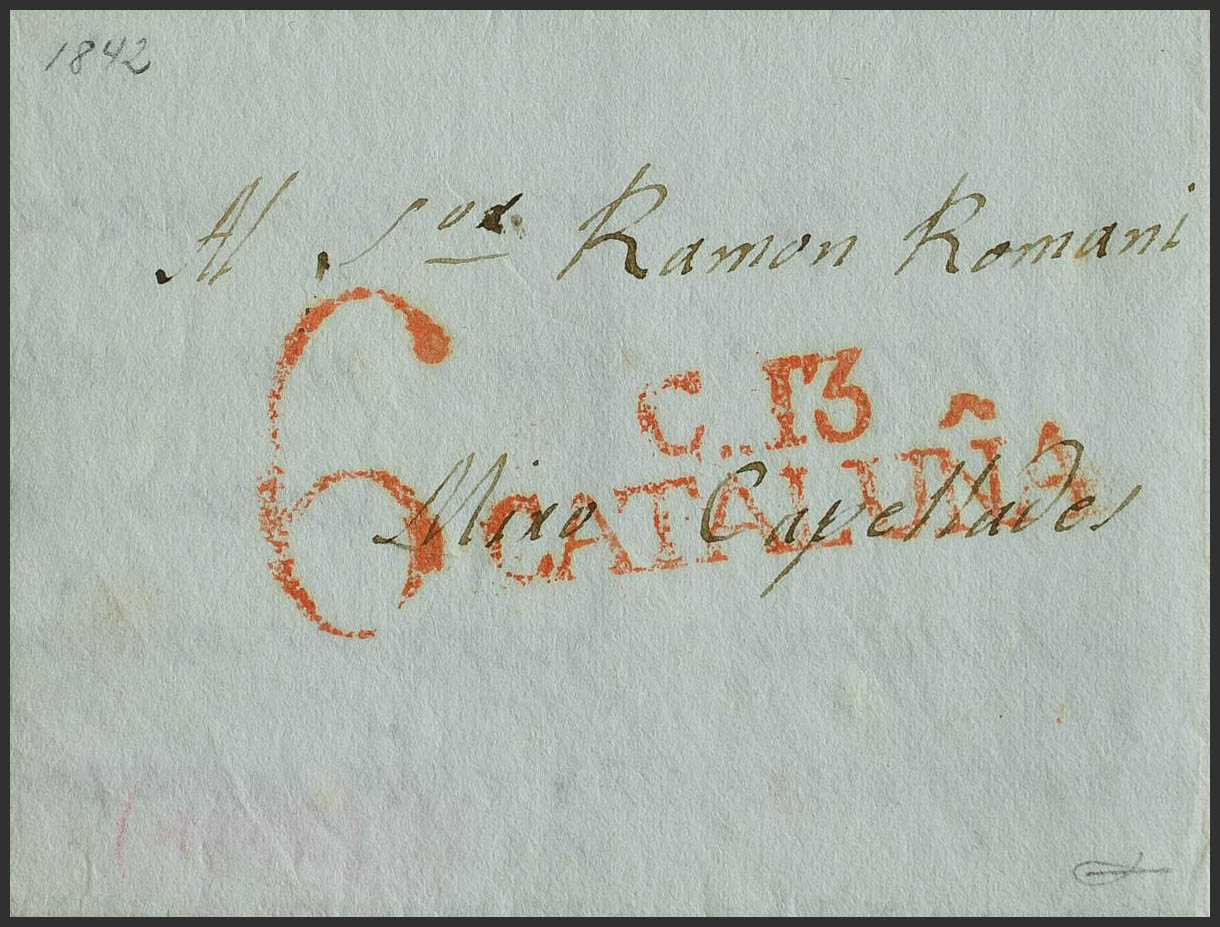 1842
Al Sor. Ramon Romani
6
C..13
CATALUÑA
Miro Capellades